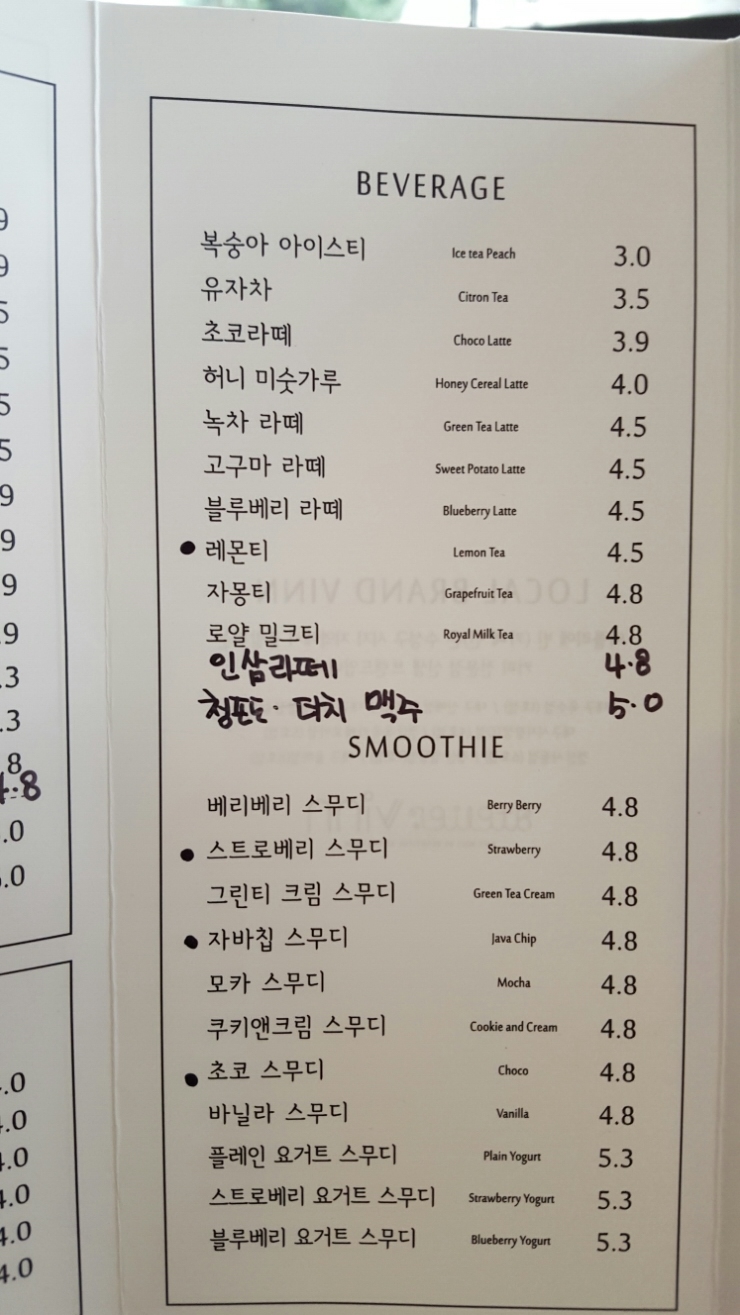 BEVERAGE
복숭아 아이스티 Ice tea Peach 3.0
유자차 Citron Tea 3.5
초코라떼 Choco Latte 3.9
허니 미숫가루 Honey Cereal Latte 4.0
녹차 라떼 Green Tea Latte 4.5
고구마 라떼 Sweet Potato Latte 4.5
블루베리 라떼 Blueberry Latte 4.5
● 레몬티 Lemon Tea 4.5
자몽티 Grapefruit Tea 4.8
로얄 밀크티 Royal Milk Tea 4.8
인삼라떼 4.8
청포도· 더치 맥주 5.0
SMOOTHIE
베리베리 스무디 Berry Berry 4.8
● 스트로베리 스무디 Strawberry 4.8
그린티 크림 스무디 Green Tea Cream 4.8
● 자바칩 스무디 Java Chip 4.8
모카 스무디 Mocha 4.8
쿠키앤크림 스무디 Cookie and Cream 4.8
● 초코 스무디 Choco 4.8
바닐라 스무디 Vanilla 4.8
플레인 요거트 스무디 Plain Yogurt 5.3
스트로베리 요거트 스무디 Strawberry Yogurt 5.3
블루베리 요거트 스무디 Blueberry Yogurt 5.3